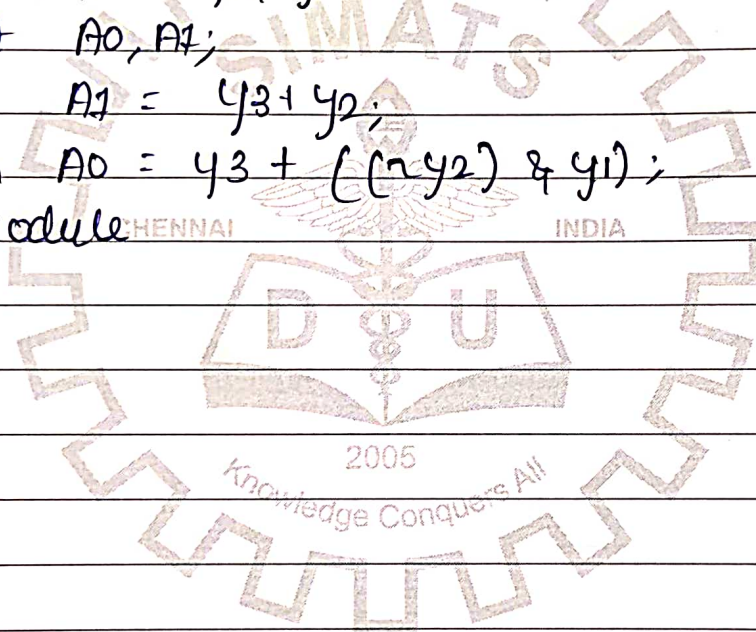 A0, A1;
A1 = y3 + y2;
A0 = y3 + ((~y2) & y1);
odule
SIMATS
CHENNAI
INDIA
D U
2005
Knowledge Conquers All